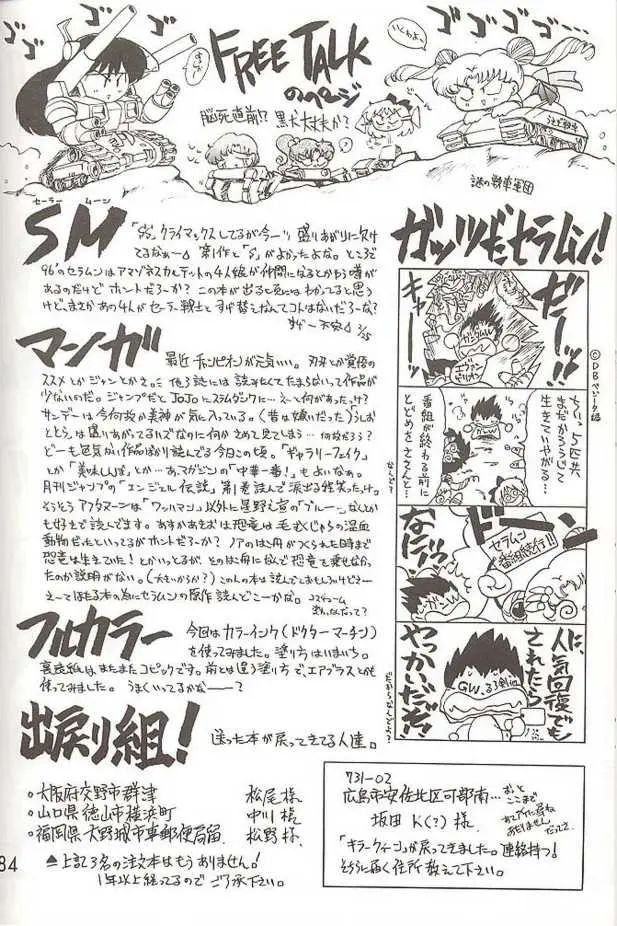 ゴゴゴ
ゴゴゴゴ…
FREE TALK
のページ
いくわよ
脳死直前!? 黒犬大丈夫か?
謎の戦車軍団
セーラー ムーン
SM
「S's」クライマックスしてるが今一ツ盛りあがりに欠け
てるなぁー 第1作と「S」がよかったよな。ところで
96'のセラムンはアマゾネスカルテットの4人娘が仲間になるとかもう噂が
あるのだけどホントだろーか?この本が出る頃にはわかってると思う
けど、まさかあの4人がセーラー戦士とすげ替えなんてコトはないだろーな?
すげー不安 2/25
マンガ
最近チャンピオンが元気いい。刃牙とか覚悟の
ススメとかジャンとかえと。他3誌には読みたくてたまらないって作品が
少ないのだ。ジャンプだとJoJoにスラムダンクに…えーて何があったっけ?
サンデーは今何故か美神が気に入っている。(昔は嫌いだった)うしお
ととらは盛りあがってるハズなのに何かさめて見てしまう…何故だろう?
どーも色気がい作品ばかり読んでる今日この頃。「ギャラリーフェイク」
とか「美味しんぼ」とか…あマガジンの「中華一番!」もよいなぁ。
月刊ジャンプの「エンジェル伝説」第1巻読んで涙出る程笑ったっけ。
そうそうアフタヌーンは「ワッハマン」以外に星野之宣の「ブルーなんとか
も好きで読んでます。あすかあきおは恐竜は毛むくじゃらの温血
動物だったといってるがホントだろーか?ノアのはこ舟がつくられた時まで
恐竜は生きていた!とかいっとるが、そのはこ舟になんで恐竜を乗せなかっ
たのか説明がない。(大きいからか?)この人の本は読んどおもしろいけどさー
えーてほたる本の為にセラムンの原作読んどこーかな。コスチューム
フルカラー
今回はカラーインク(ドクターマーチン)
を使ってみました。塗り方はいまいち。
裏表紙はまたまたコピックです。前とは違う塗り方で、エアブラスとかも
使ってみました。うまくいってるかなーーー?
出戻り組!
送った本が戻ってきてる人達。
○大阪府交野市群津 松尾様
○山口県徳山市横浜町 中川様
○福岡県大野城市東郵便局留 松野様
▲上記3名の注文本はもうありません!
1年以上経ってるのでご了承下さい。
ガッツだセラムン!
©DBベジータ編
だーッ!!
キャー
ガンダムW
エヴァンゲリオン
ちいっ5匹共
まだかろうじて
生きていやがる…
番組が終わる前に
とどめをささんと…
なんで?
ドーン
セラムン
番組続行!!
なにィッ
ガンダムW
人気回復でも
されたら
やっかいだぞ!
GW、るろ剣他
だからなんでよ?
731-02
広島市安佐北区可部南…
おっと
ここまで
坂田K(?)様
「キラークィーン」が戻ってきました。連絡待つ!
そちらに届く住所教えて下さい。
84